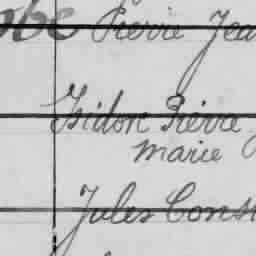 Pierre Jea
Isidore Pierre
Marie
Jules Const